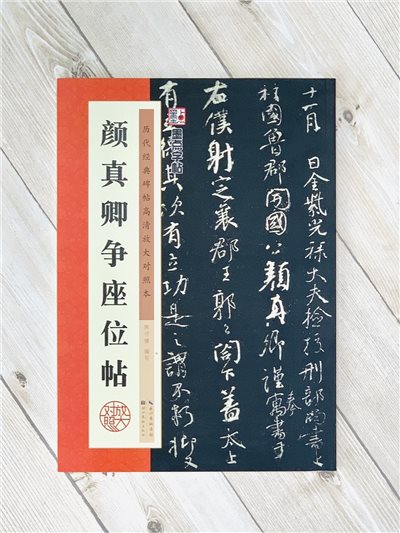 颜真卿争座位帖
历代经典碑帖高清放大对照本
墨点字帖
放大
对照
十一月 日金紫光禄大夫检校刑部尚书上
柱国鲁郡开国公颜真卿谨奉寓书于
右仆射定襄郡王郭公阁下盖太上
有立德其次有立功是之谓不朽抑又